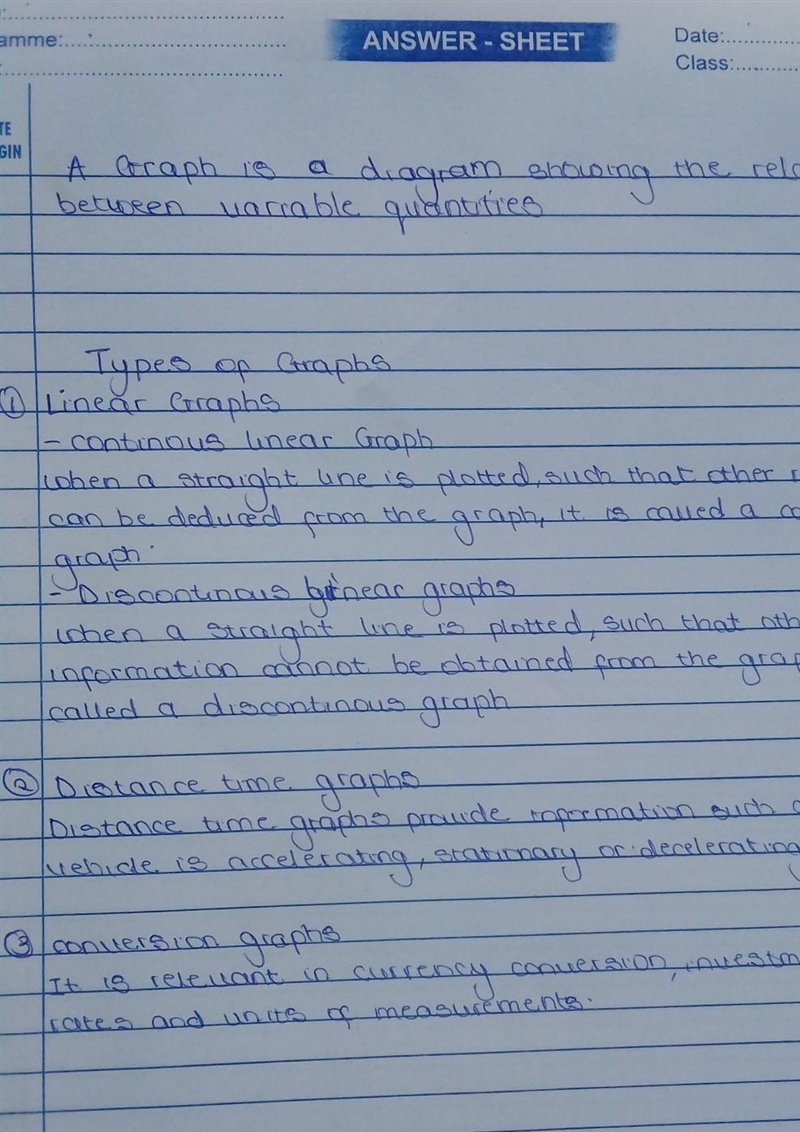 amme:
ANSWER - SHEET
Date:
Class:
TE
GIN
A Graph is a diagram showing the rela
between variable quantities
Types of Graphs
① Linear Graphs
- continous linear Graph
When a straight line is plotted, such that other
can be deduced from the graph, it is called a co
graph.
- Discontinous linear graphs
When a straight line is plotted, such that oth
information cannot be obtained from the grap
called a discontinous graph
② Distance time graphs
Distance time graphs provide information such a
vehicle is accelerating, stationary or decelerating
③ conversion graphs
It is relevant in currency conversion, investm
rates and units of measurements.